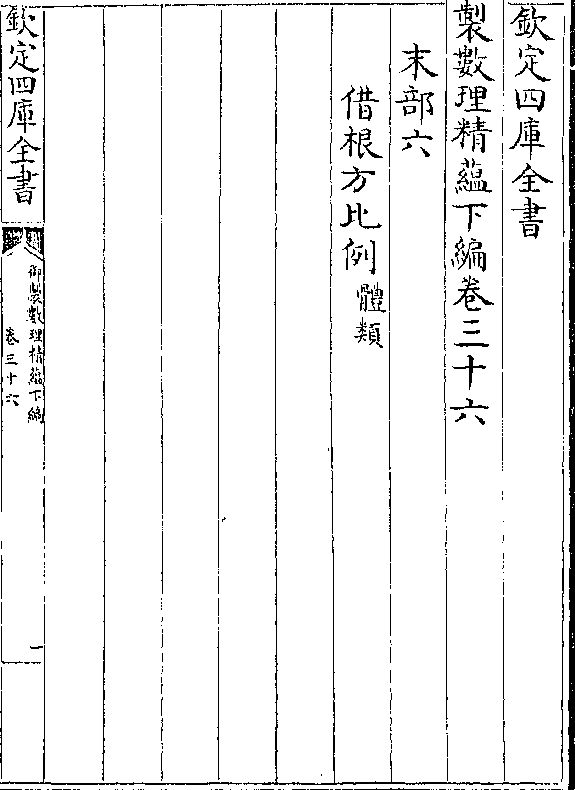 欽定四庫全書
製數理精蘊下編卷三十六
末部六
借根方比例體類
欽定四庫全書
御製數理精蘊下編
卷三十六
一